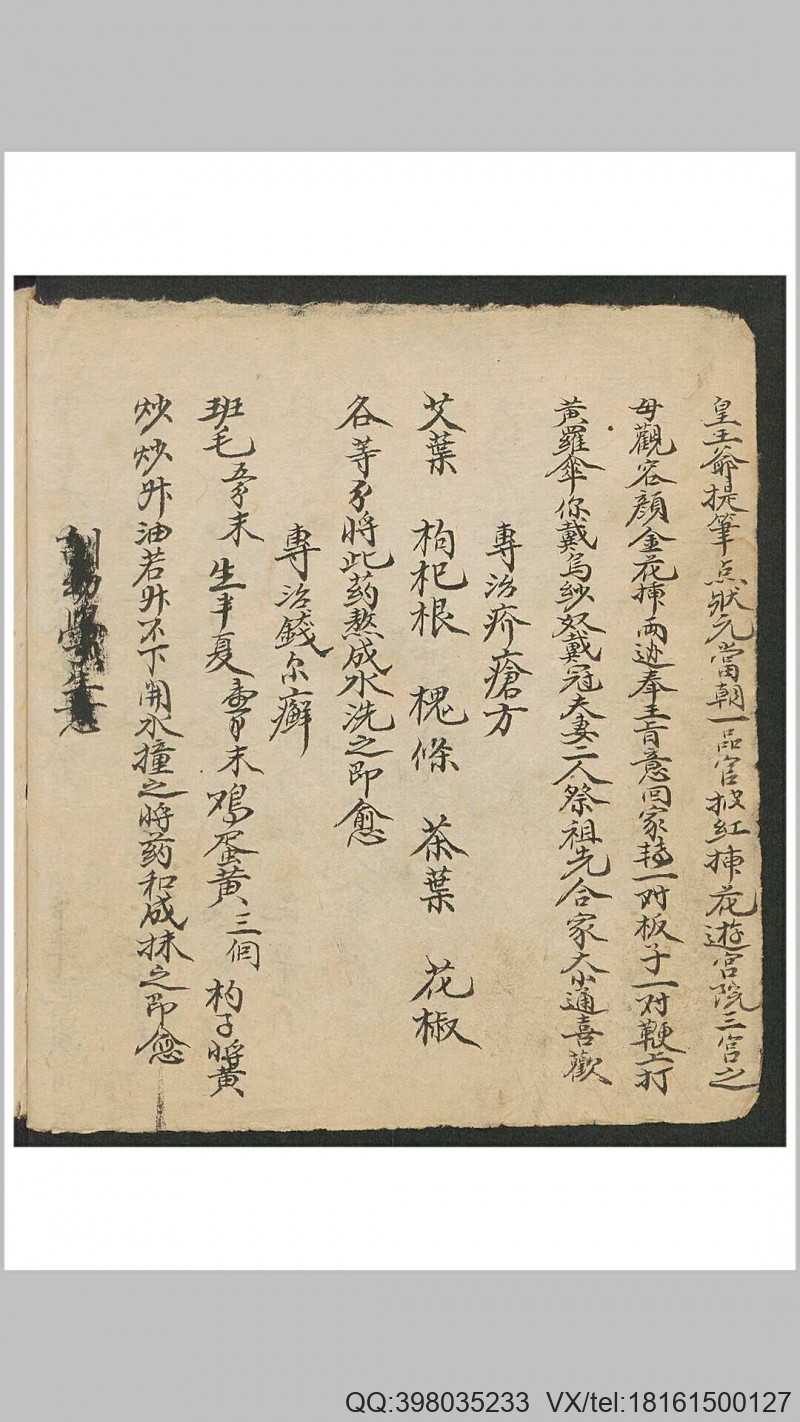 皇王爺提筆点狀元當朝一品官披紅揷花遊宮院三宮之
母觀容顔金花揷兩边奉王旨意回家轉一对板子一对鞭上打
黃羅傘你戴烏紗奴戴冠夫妻二人祭祖先合家大小通喜歡
專治疥瘡方
艾葉 枸杞根 槐條 茶葉 花椒
各等分將此药熬成水洗之即愈
專治錢尔癬
班毛 末 生半夏 末 鸡蛋黄三個 杓子將黄
炒炒升油若升不下開水撞之將药和成抹之即愈
QQ:398035233 VX/tel:18161500127